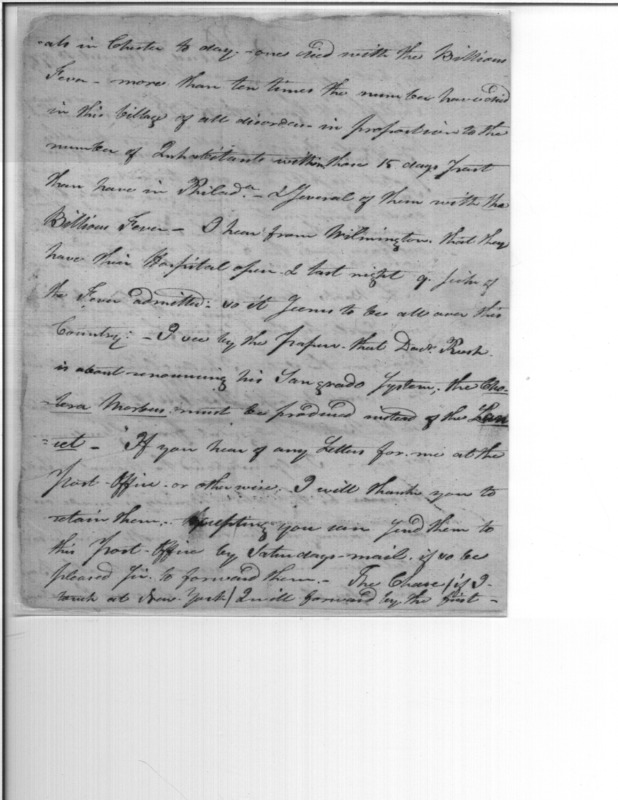 -als in Chester to day. - one died with the Billious
Fever - more than ten times the number have died
in this Village of all disorders - in proportion to the
number of Inhabitants within those 15 days past
than have in Philada. - & Several of them with the
Billious Fever - I hear from Wilmington, that they
have their Hospital open & last night 9 sick of
the Fever admitted - so it Seems to be all over this
Country: - I see by the papers that Docr. Rush
is about renouncing his Sangrado System; the Cho-
-lera Morbus must be produced instead of the Lan
-cet - If you hear of any Letters for me at the
Post-Office or otherwise. I will thank you to
retain them, - Excepting you can Send them to
this Post-Office by Saturdays-mail. if so be
pleased Sir. to forward them. - The Chase (if I
touch at New-York) I will forward by the first -